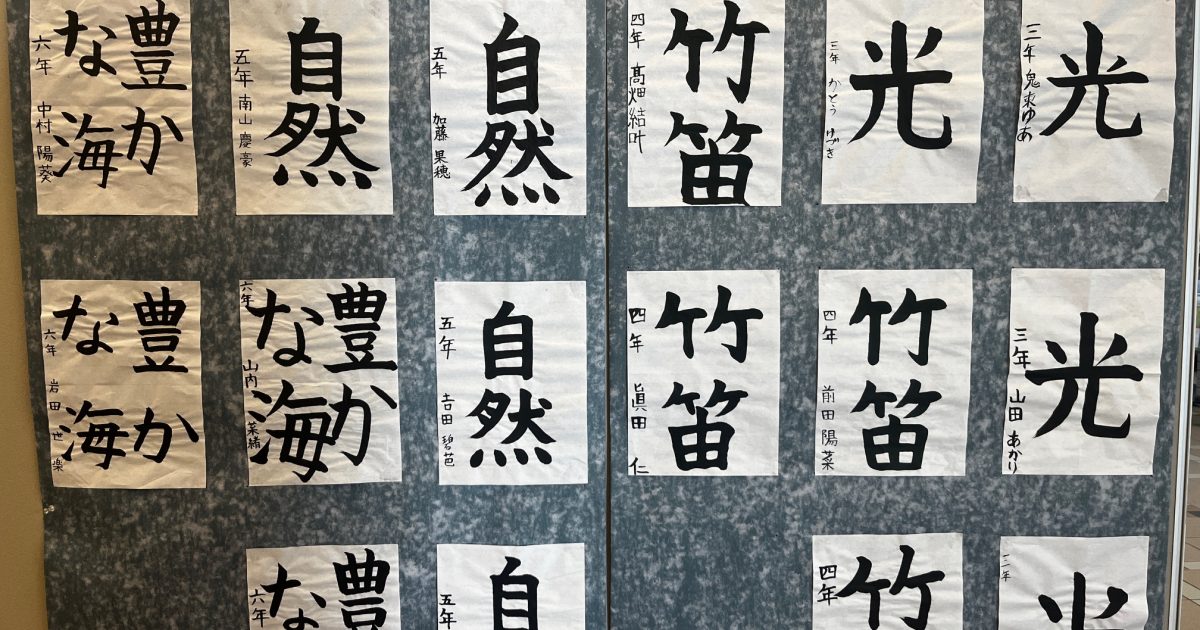 光
三年 鬼束ゆあ
光
三年 かとう ゆづき
竹笛
四年 髙畑結叶
自然
五年 加藤 果穂
自然
五年 南山 慶豪
豊か
な海
六年 中村 陽葵
光
三年 山田 あかり
竹笛
四年 前田 陽菜
竹笛
四年 眞田 仁
自然
五年 吉田 碧芭
豊か
な海
六年 山内 菜緒
豊か
な海
六年 岩田 世楽
光
竹
四年
自
五年
豊
な
六年